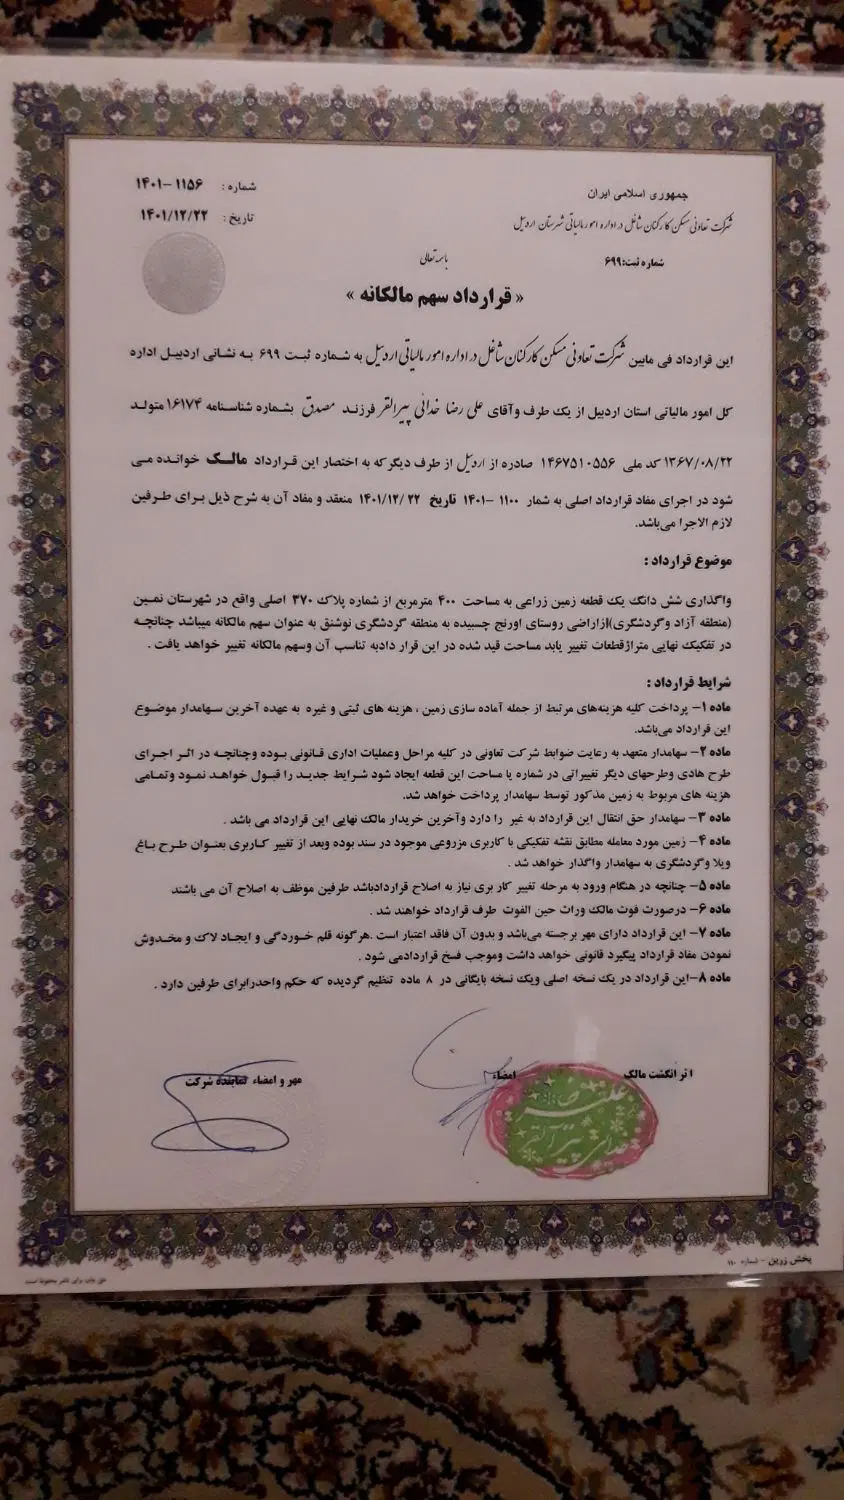 جمهوری اسلامی ایران
شماره : ۱۱۵۶–۱۴۰۱
شرکت تعاونی مسکن کارکنان شاغل در اداره امور مالیاتی شهرستان اردبیل
تاریخ : ۱۴۰۱/۱۲/۲۲
شماره ثبت: ۶۹۹
باسمه تعالی
« قرارداد سهم مالکانه »
این قرارداد فی مابین شرکت تعاونی مسکن کارکنان شاغل در اداره امور مالیاتی اردبیل به شماره ثبت ۶۹۹ به نشانی اردبیل اداره
کل امور مالیاتی استان اردبیل از یک طرف وآقای علی رضا خدائی پیرالقر فرزند مصدق بشماره شناسنامه ۱۶۱۷۴ متولد
۱۳۶۷/۰۸/۲۲ کد ملی ۱۴۶۷۵۱۰۵۵۶ صادره از اردبیل از طرف دیگرکه به اختصار این قرارداد مالک خوانده می
شود در اجرای مفاد قرارداد اصلی به شمار ۱۱۰۰ –۱۴۰۱ تاریخ ۱۴۰۱/۱۲/ ۲۲ منعقد و مفاد آن به شرح ذیل برای طرفین
لازم الاجرا می‌باشد.
موضوع قرارداد :
واگذاری شش دانگ یک قطعه زمین زراعی به مساحت ۴۰۰ مترمربع از شماره پلاک ۳۷۰ اصلی واقع در شهرستان نمین
(منطقه آزاد وگردشگری)ازاراضی روستای اورنج چسبیده به منطقه گردشگری نوشنق به عنوان سهم مالکانه میباشد چنانچه
در تفکیک نهایی متراژقطعات تغییر یابد مساحت قید شده در این قرار دادبه تناسب آن وسهم مالکانه تغییر خواهد یافت .
شرایط قرارداد :
ماده ۱– پرداخت کلیه هزینه‌های مرتبط از جمله آماده سازی زمین ، هزینه های ثبتی و غیره به عهده آخرین سهامدار موضوع
این قرارداد می‌باشد.
ماده ۲– سهامدار متعهد به رعایت ضوابط شرکت تعاونی در کلیه مراحل وعملیات اداری قانونی بوده وچنانچه در اثر اجرای
طرح هادی وطرحهای دیگر تغییراتی در شماره یا مساحت این قطعه ایجاد شود شرایط جدید را قبول خواهد نمود وتمامی
هزینه های مربوط به زمین مذکور توسط سهامدار پرداخت خواهد شد.
ماده ۳– سهامدار حق انتقال این قرارداد به غیر را دارد وآخرین خریدار مالک نهایی این قرارداد می باشد .
ماده ۴– زمین مورد معامله مطابق نقشه تفکیکی با کاربری مزروعی موجود در سند بوده وبعد از تغییر کاربری بعنوان طرح باغ
ویلا وگردشگری به سهامدار واگذار خواهد شد .
ماده ۵– چنانچه در هنگام ورود به مرحله تغییر کار بری نیاز به اصلاح قراردادباشد طرفین موظف به اصلاح آن می باشند
ماده ۶– درصورت فوت مالک وراث حین الفوت طرف قرارداد خواهند شد .
ماده ۷– این قرارداد دارای مهر برجسته می‌باشد و بدون آن فاقد اعتبار است .هرگونه قلم خوردگی و ایجاد لاک و مخدوش
نمودن مفاد قرارداد پیگیرد قانونی خواهد داشت وموجب فسخ قراردادمی شود .
ماده ۸–این قرارداد در یک نسخه اصلی ویک نسخه بایگانی در ۸ ماده تنظیم گردیده که حکم واحدرابرای طرفین دارد .
اثر انگشت مالک
امضاء
مهر و امضاء نماینده شرکت
علی رضا
خدائی پیرالقر
پخش زرین – شماره ۱۱۰
حق چاپ برای ناشر محفوظ است